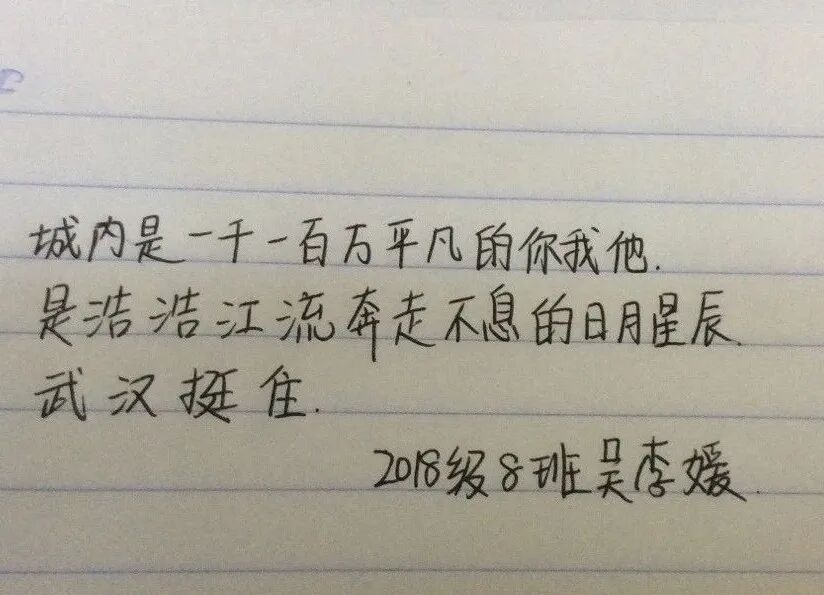 城内是一千一百万平凡的你我他.
是浩浩江流奔走不息的日月星辰.
武汉挺住.
2018级8班吴李媛.